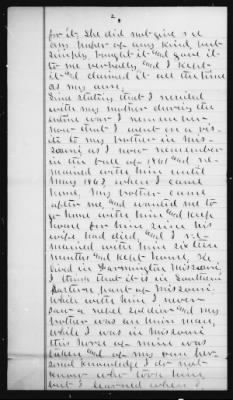 2
for it. She did not give me
any paper of any kind, but
simply bought it and gave it
to me verbally, and I kept
it and claimed it all the time
as my own.
Since stating that I resided
with my mother during the
entire war I remember
now that I went on a vis-
it to my brother in Mis-
souri as I now remember
in the fall of 1861 and re-
mained with him until
May 1863, when I came
home. My brother came
after me, and wanted me to
go home with him and keep
house for him since his
wife had died, and I re-
mained with him sixteen
months and kept house. He
lived in Farmington Missouri
I think that it is in Southern
part of Missouri.
While with him I never
saw a rebel soldier and my
brother was an union man,
while I was in Missouri
this horse of mine was
taken and of my own per-
sonal knowledge I do not
know who took him
but I learned when I